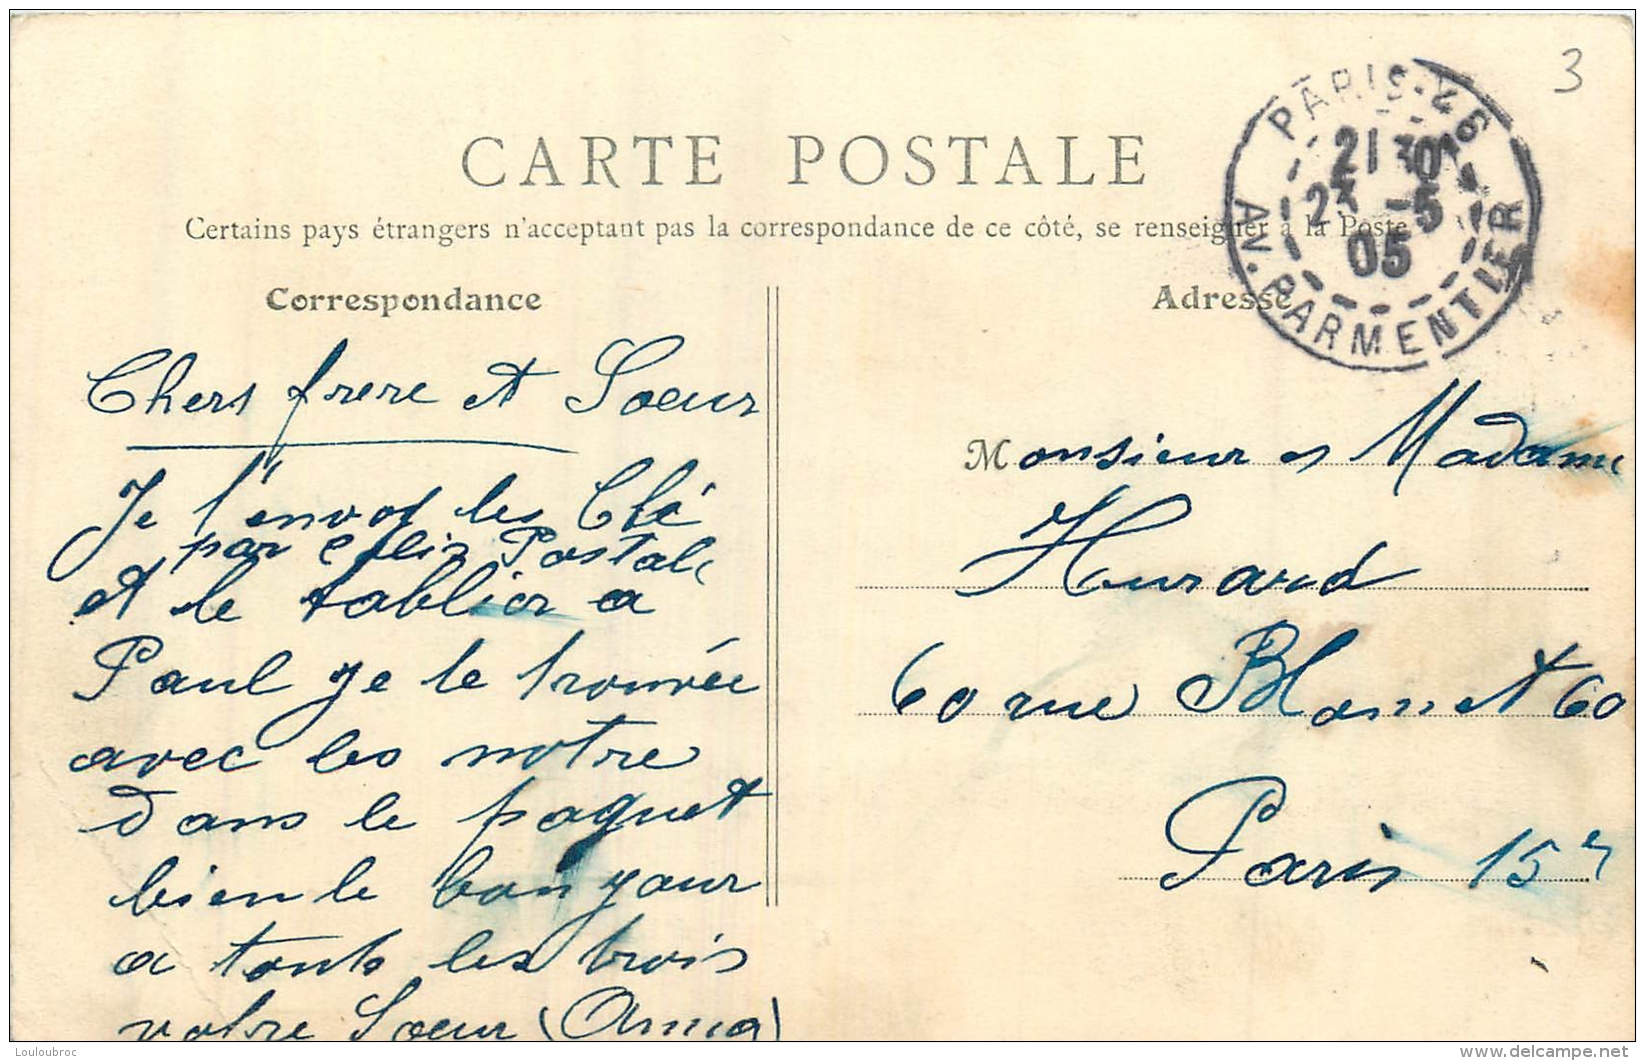 3
PARIS-46
21 30
23 -5
05
AV. PARMENTIER
CARTE POSTALE
Certains pays étrangers n'acceptant pas la correspondance de ce côté, se renseigner à la Poste
Correspondance
Adresse
Chers frere et Soeur
Je l'envoi les Clé
par Colis Postale
et le tablier a
Paul je le trouvée
avec les notre
dans le paquet
bien le bonjour
a touts les trois
votre Soeur (Anna)
Monsieur et Madame
Hurard
60 rue Blomet 60
Paris 15e
Louloubroc
delcampe.net